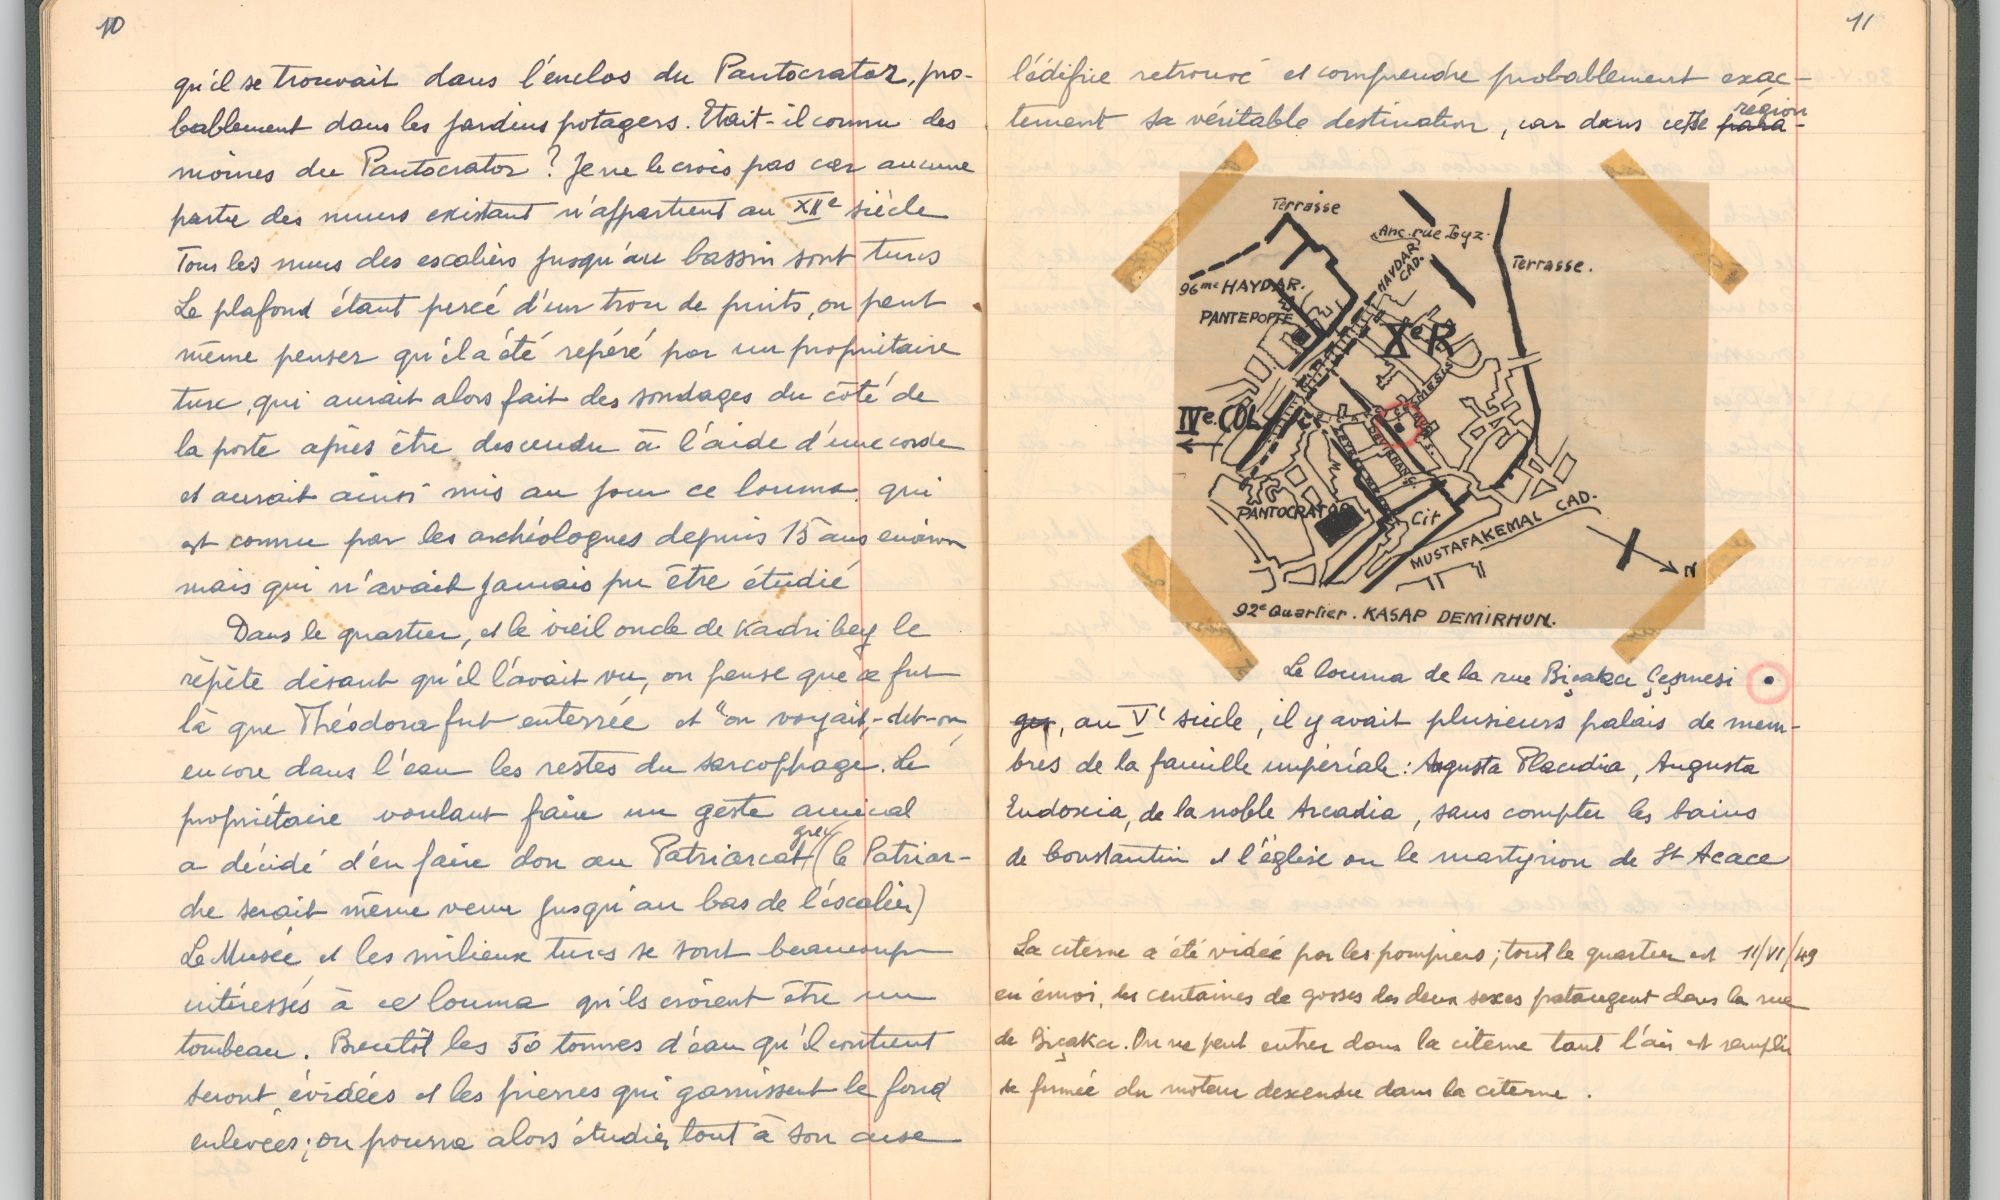 10
qu'il se trouvait dans l'enclos du Pantocrator, pro-
bablement dans les jardins potagers. Etait-il connu des
moines du Pantocrator ? Je ne le crois pas car aucune
partie des murs existant n'appartient au XIIe siècle
Tous les murs des escaliers jusqu'au bassin sont turcs
Le plafond étant percé d'un trou de puits, on peut
même penser qu'il a été repéré par un propriétaire
turc, qui aurait alors fait des sondages du côté de
la porte après être descendu à l'aide d'une corde
et aurait ainsi mis au jour ce louma qui
est connu par les archéologues depuis 15 ans environ
mais qui n'avait jamais pu être étudié
Dans le quartier, et le vieil oncle de Kadri bey le
répète disant qu'il l'avait vu, on pense que ce fut
là que Théodora fut enterrée et "on voyait,-dit-on,
encore dans l'eau les restes du sarcophage. Le
propriétaire voulant faire un geste amical
a décidé d'en faire don au Patriarcat grec (le Patriar-
che serait même venu jusqu'au bas de l'escalier)
Le Musée et les milieux turcs se sont beaucoup
intéressés à ce louma qu'ils croient être un
tombeau. Bientôt les 50 tonnes d'eau qu'il contient
seront évidées et les pierres qui garnissent le fond
enlevées; on pourra alors étudier tout à son aise
11
l'édifice retrouvé et comprendre probablement exac-
tement sa véritable destination, car dans cette para- région
Terrasse
Anc. rue Byz.
Terrasse.
HAYDAR CAD.
96me HAYDAR.
PANTEPOPTE
Xe R
IVe COL
PANTOCRATOR
Cit
MUSTAFAKEMAL CAD.
N
92e Quartier. KASAP DEMIRHUN.
Le louma de la rue Bıçakcı Çeşmesi
ges, au Ve siècle, il y avait plusieurs palais de mem-
bres de la famille impériale : Augusta Placidia, Augusta
Eudoxia, de la noble Arcadia, sans compter les bains
de Constantin et l'église ou le martyrion de St Acace
La citerne a été vidée par les pompiers; tout le quartier est 11/VI/49
en émoi, des centaines de gosses des deux sexes pataugent dans la rue
de Bıçakcı. On ne peut entrer dans la citerne tant l'air est rempli
de fumée du moteur descendu dans la citerne.